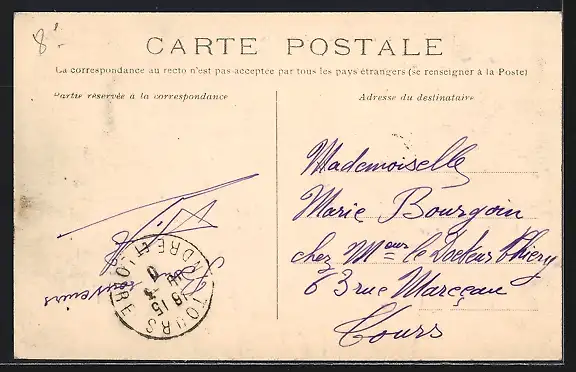 8'
CARTE POSTALE
La correspondance au recto n'est pas acceptée par tous les pays étrangers (se renseigner à la Poste)
Partie réservée à la correspondance
Adresse du destinataire
Mademoiselle
Marie Bourgoin
chez Meur le Docteur Thiery
63 rue Marceau
Tours
souvenirs
TOURS INDRE ET LOIRE
18 15